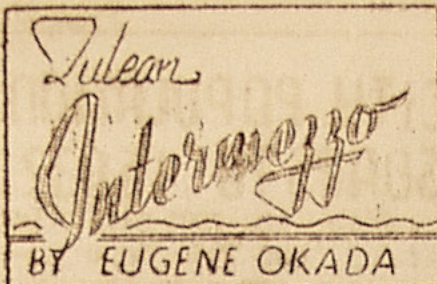 Tulean
Intermezzo
BY EUGENE OKADA